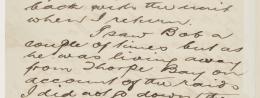 back with the unit
when I return.
I saw Bob a
couple of times but as
he was living away
from Thorpe Bay on
account of the raids
I did not go down the